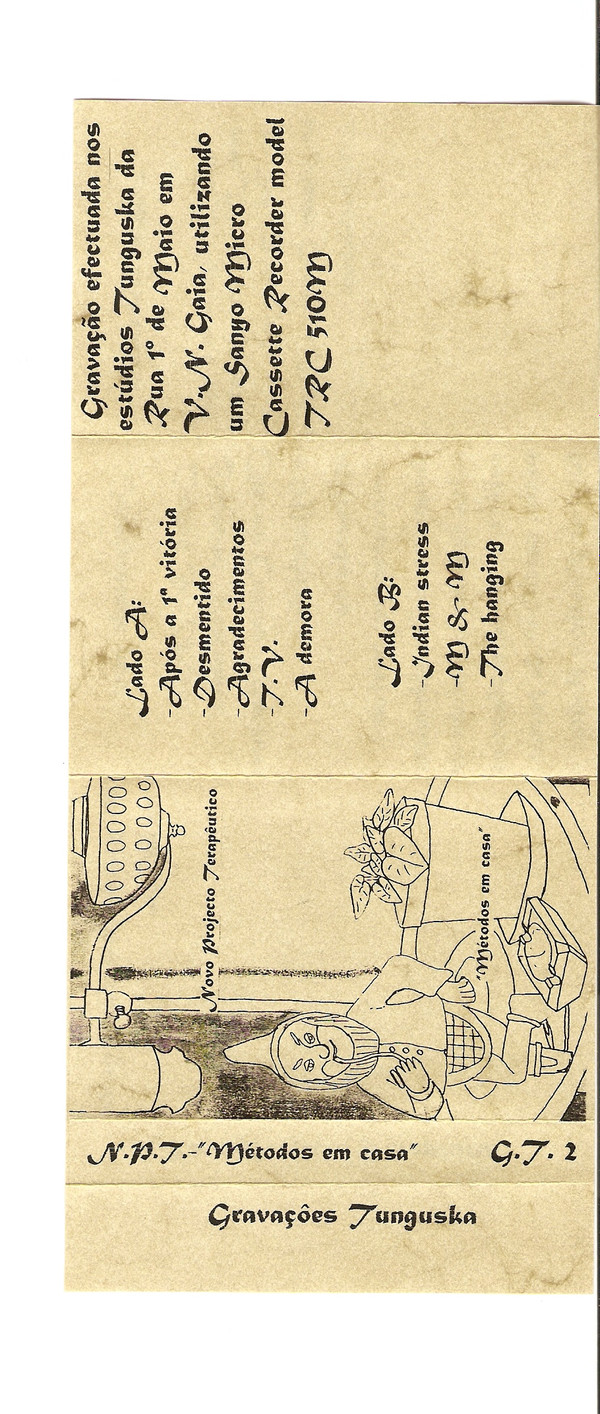 Gravação efectuada nos
estúdios Tunguska da
Rua 1º de Maio em
V.N. Gaia, utilizando
um Sanyo Micro
Cassette Recorder model
TRC 510M
Lado A:
-Após a 1ª vitória
-Desmentido
-Agradecimentos
-T.V.
-A demora
Lado B:
-Indian stress
-M & M
-The hanging
Novo Projecto Terapêutico
"Métodos em casa"
N.P.T.-"Métodos em casa"
G.T. 2
Gravações Tunguska